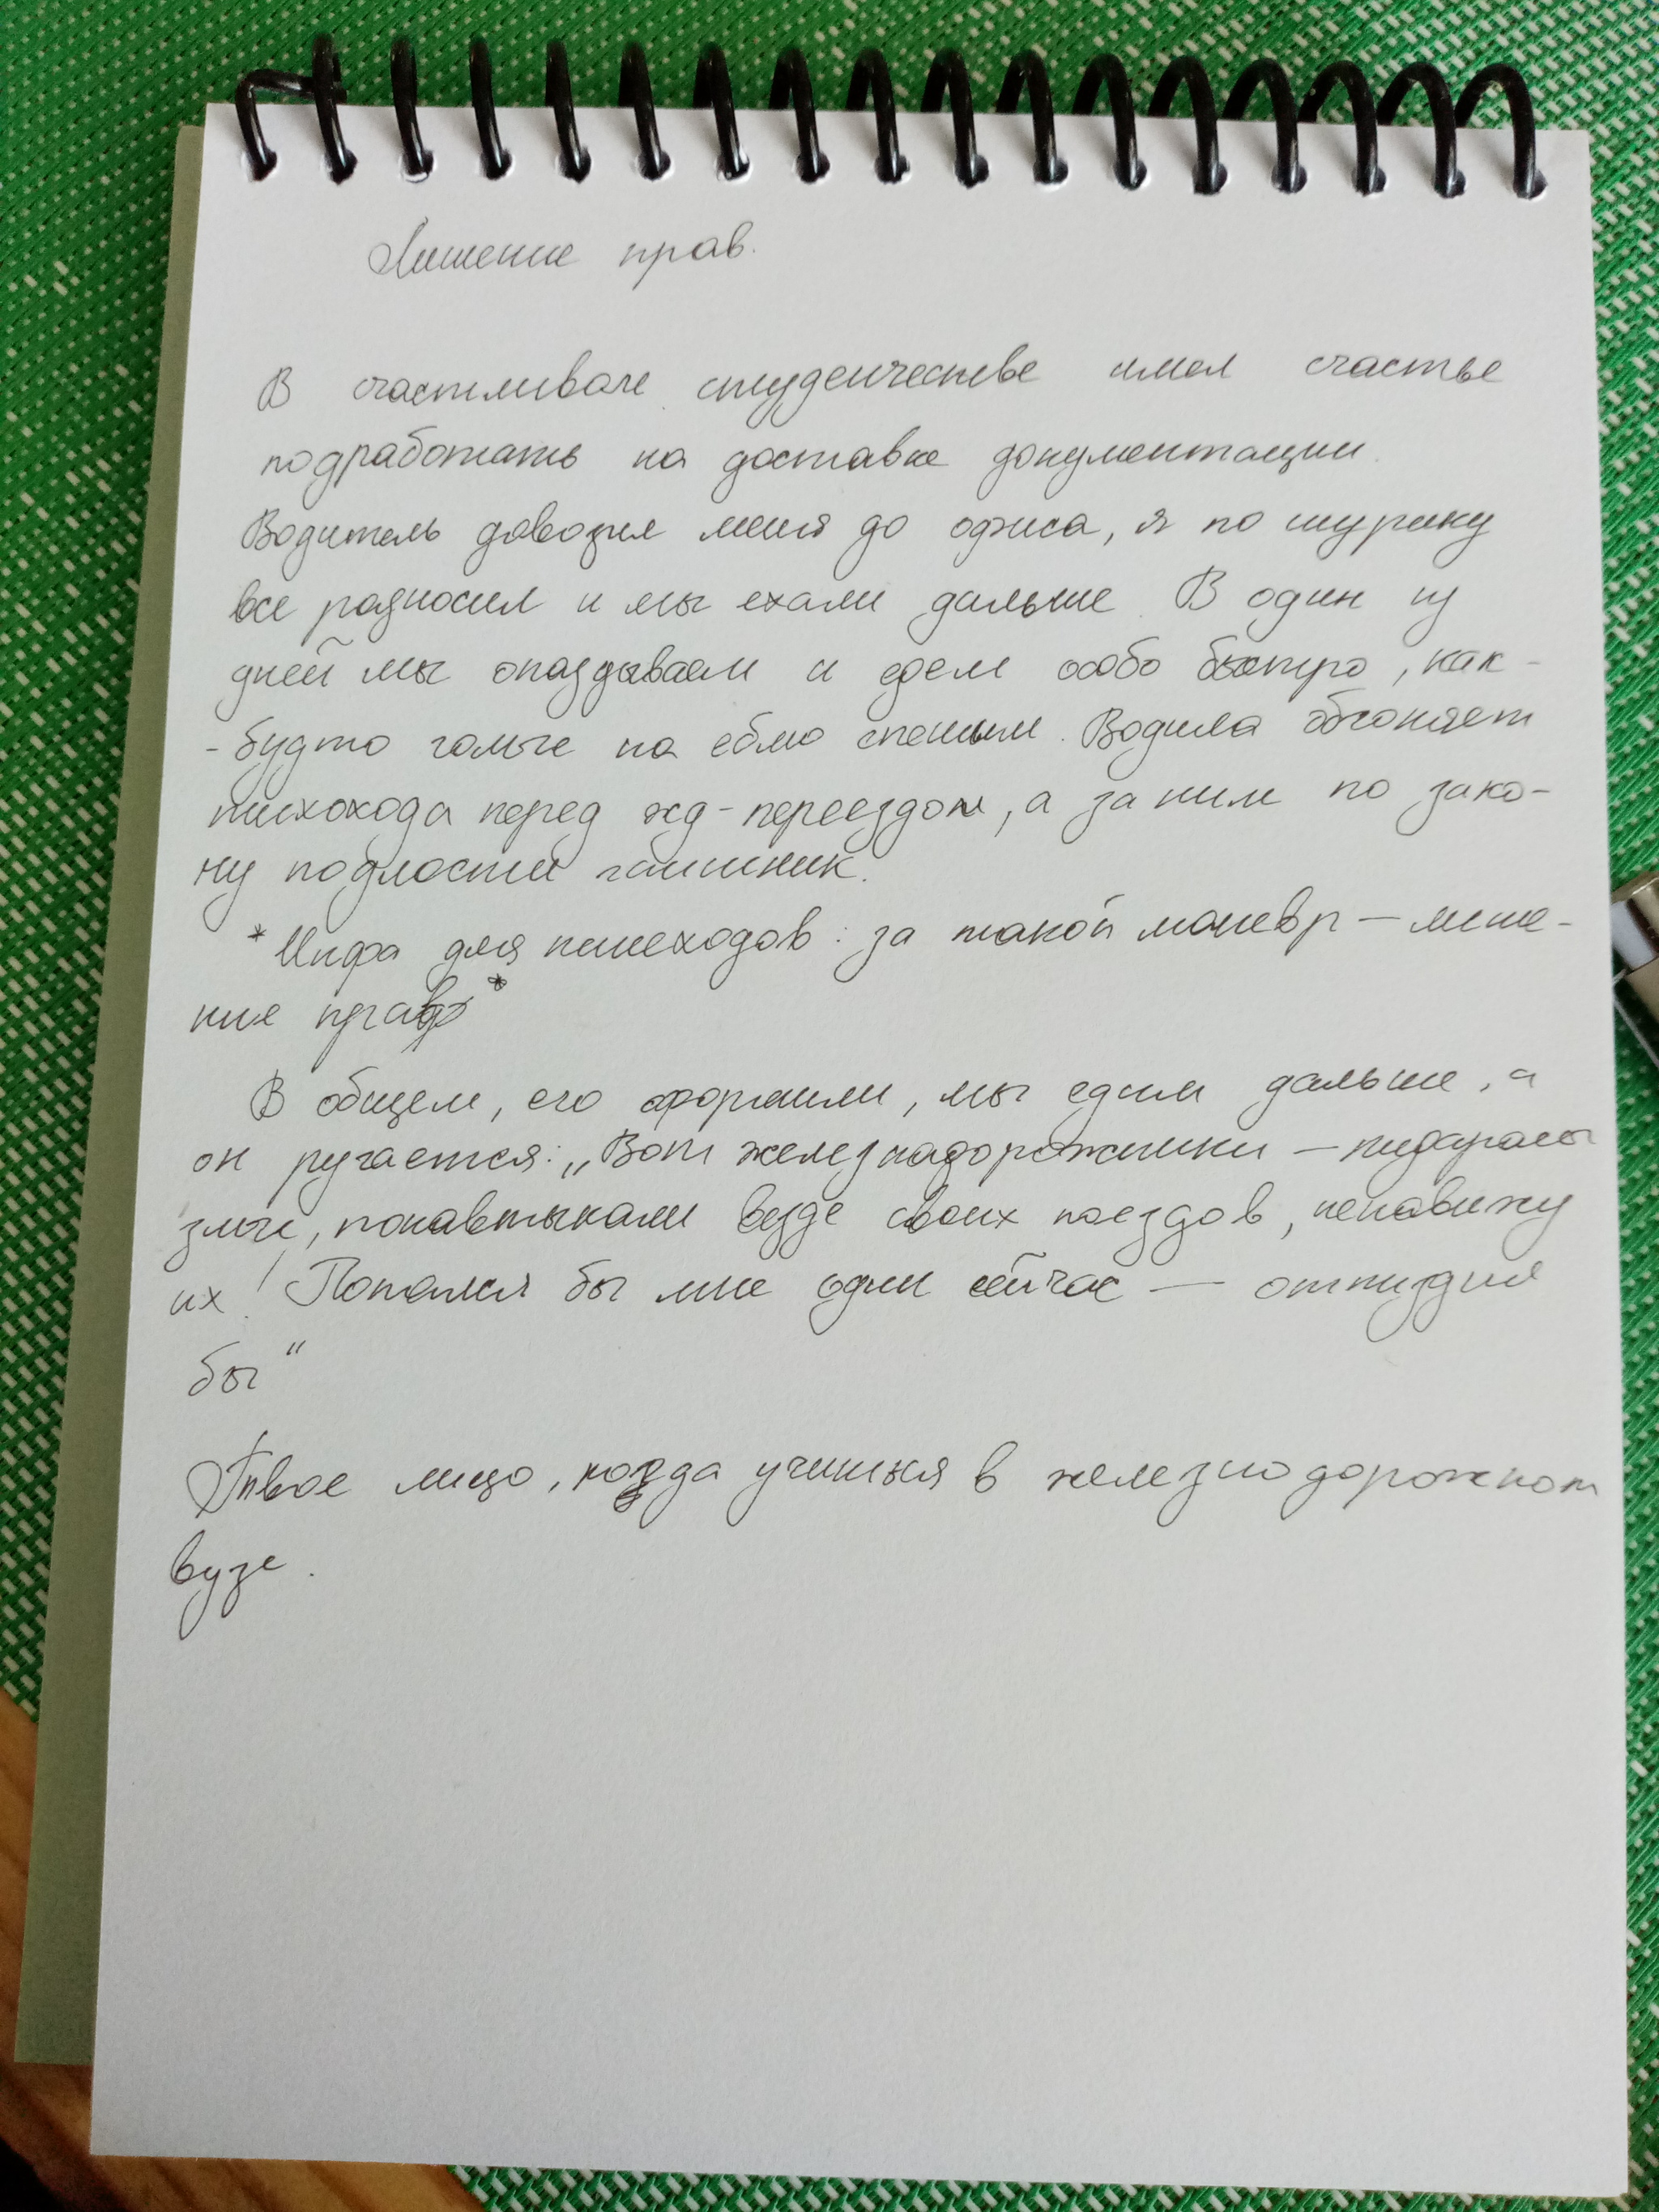 Лишение прав.
В счастливом студенчестве имел счастье
подработать на доставке документации.
Водитель довозил меня до офиса, я по шурику
все разносил и мы ехали дальше. В один из
дней мы опаздываем и едем особо быстро, как-
-будто голые на еблю спешим. Водила обгоняет
тихохода перед жд-переездом, а за ним по зако-
ну подлости гаишник.
*Инфа для пешеходов: за такой маневр — лише-
ние прав*
В общем, его оформили, мы едим дальше, а
он ругается: „Вот железнадорожники — пидарасы
злые, понавтыкали везде своих поездов, ненавижу
их! Попался бы мне один сейчас — отпиздил
бы“
Твое лицо, когда учишься в железнодорожном
вузе.